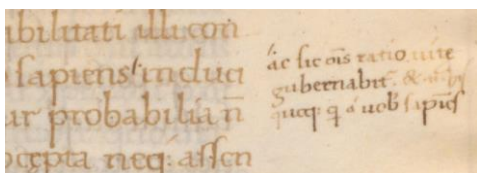 ibilitati illi con
sapiens induci
ur probabilia n̄
ocepta neq; assen
ac sic oīs ratio uite
gubernabit̄. &
quoq; q̄ a uob̄ sapiēs